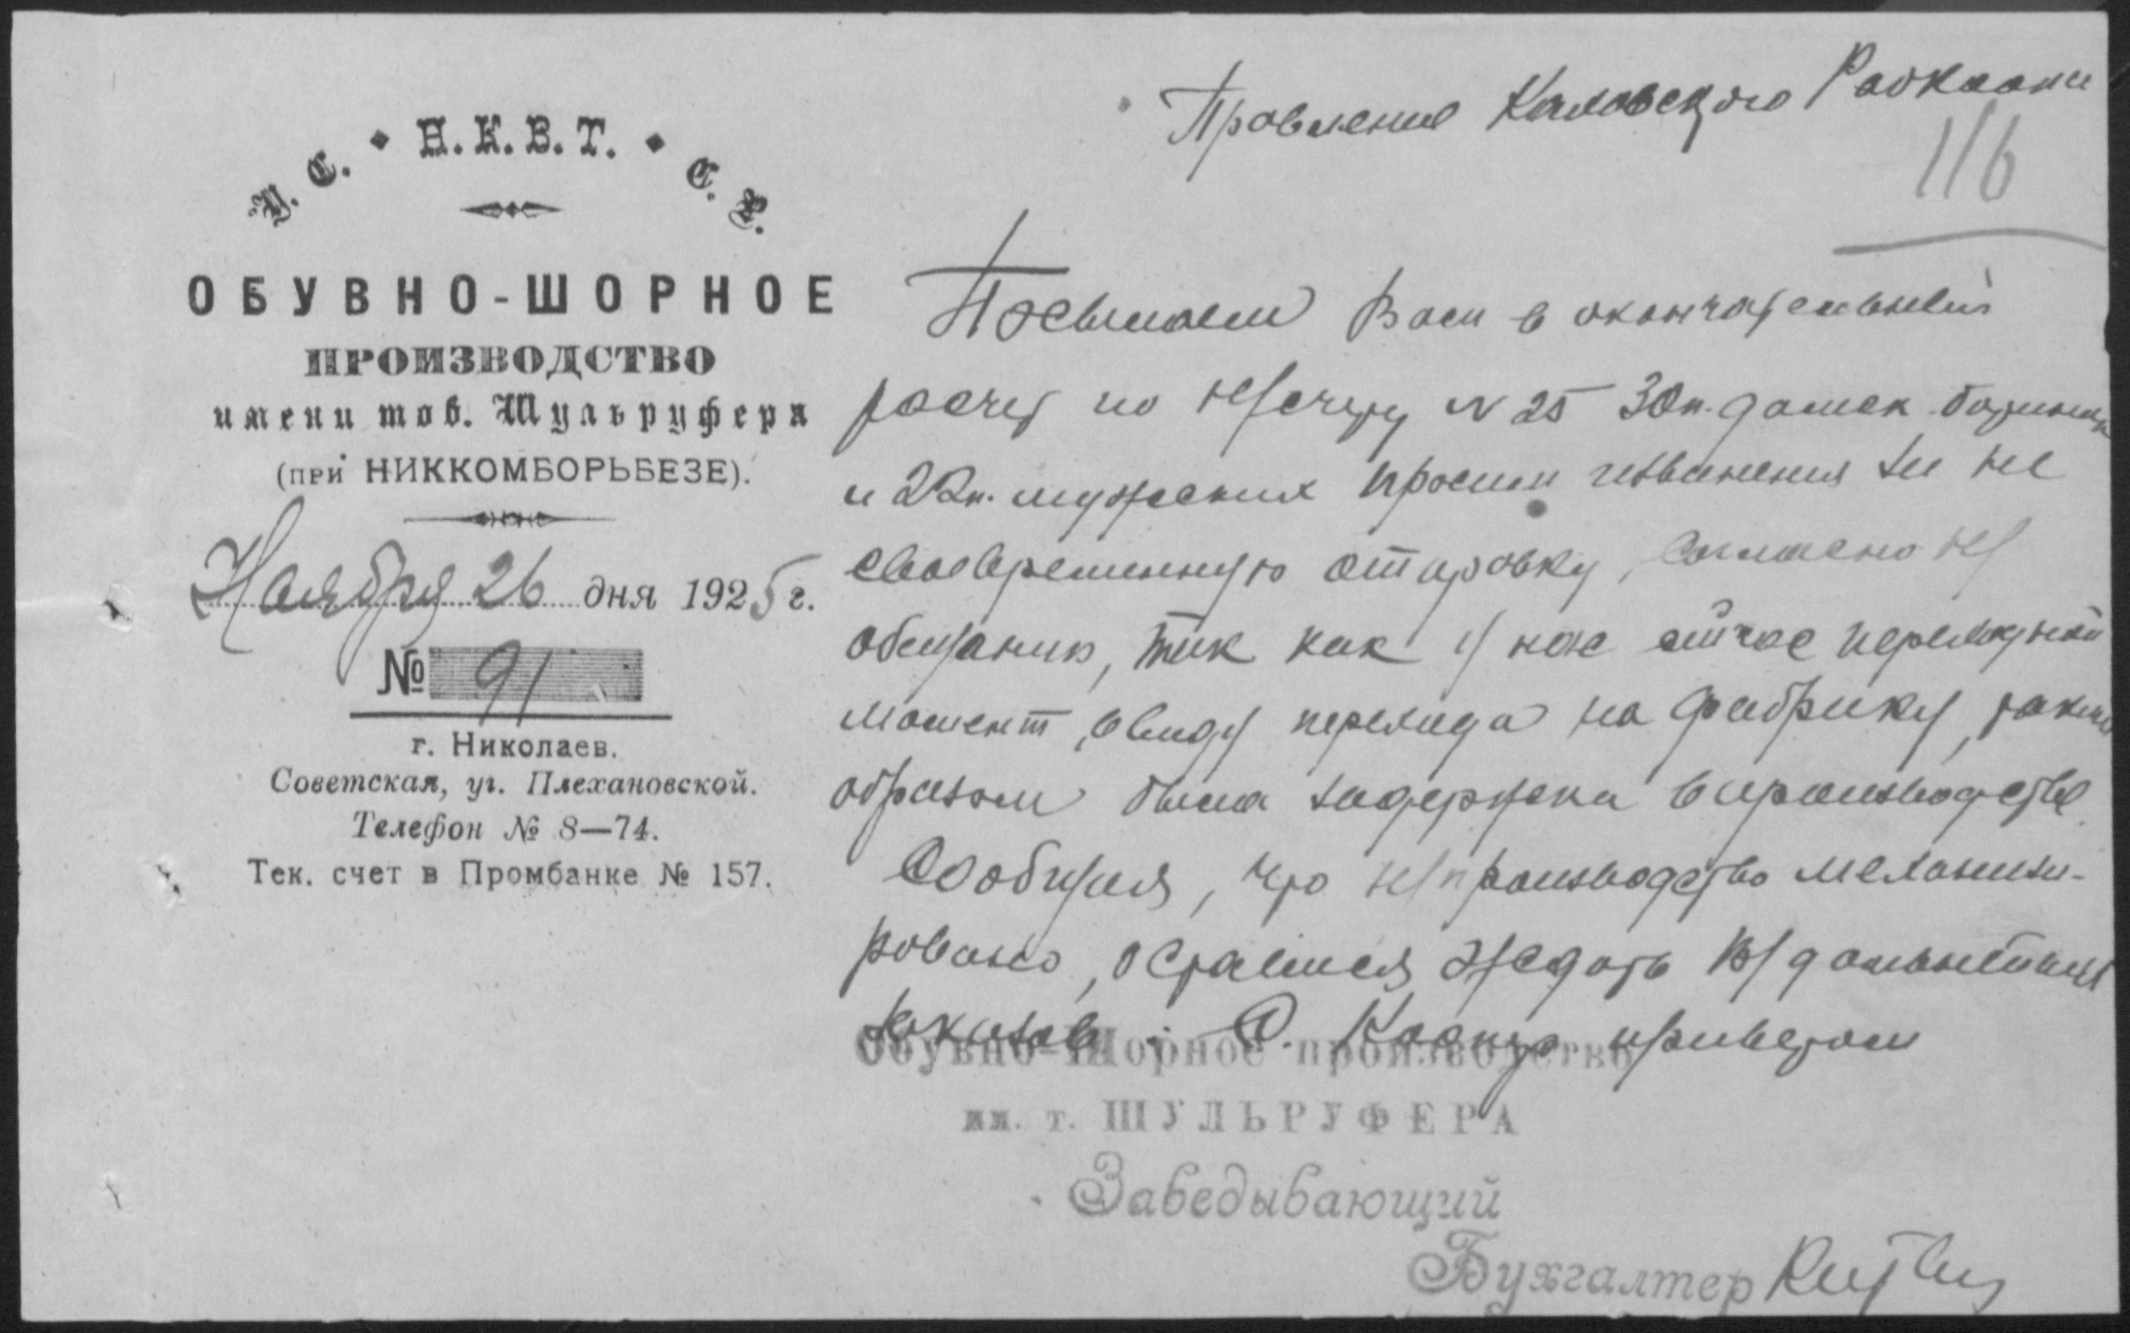 У. С. • Н. К. В. Т. • С. Р.
ОБУВНО-ШОРНОЕ
ПРОИЗВОДСТВО
имени тов. Шульруфера
(при НИККОМБОРЬБЕЗЕ).
Ноября 26 дня 1925 г.
№ 91
г. Николаев.
Советская, уг. Плехановской.
Телефон № 8—74.
Тек. счет в Промбанке № 157.
Правление
116
Посылаем Вам в окончательный
расчет по н/счету N 25 30п. дамск. ботинок
и 22п. мужских просим извинения за не
своевременную отправку, согласно н/
обещанию, так как у нас сейчас
момент, ввиду перехода на фабрику, таким
образом была задержка в производстве.
Сообщая, что н/производство механизи-
ровано, остаемся ждать В/дальнейших
заказов. С приветом
Обувно-Шорное производство
им. т. ШУЛЬРУФЕРА
Заведывающий
Бухгалтер